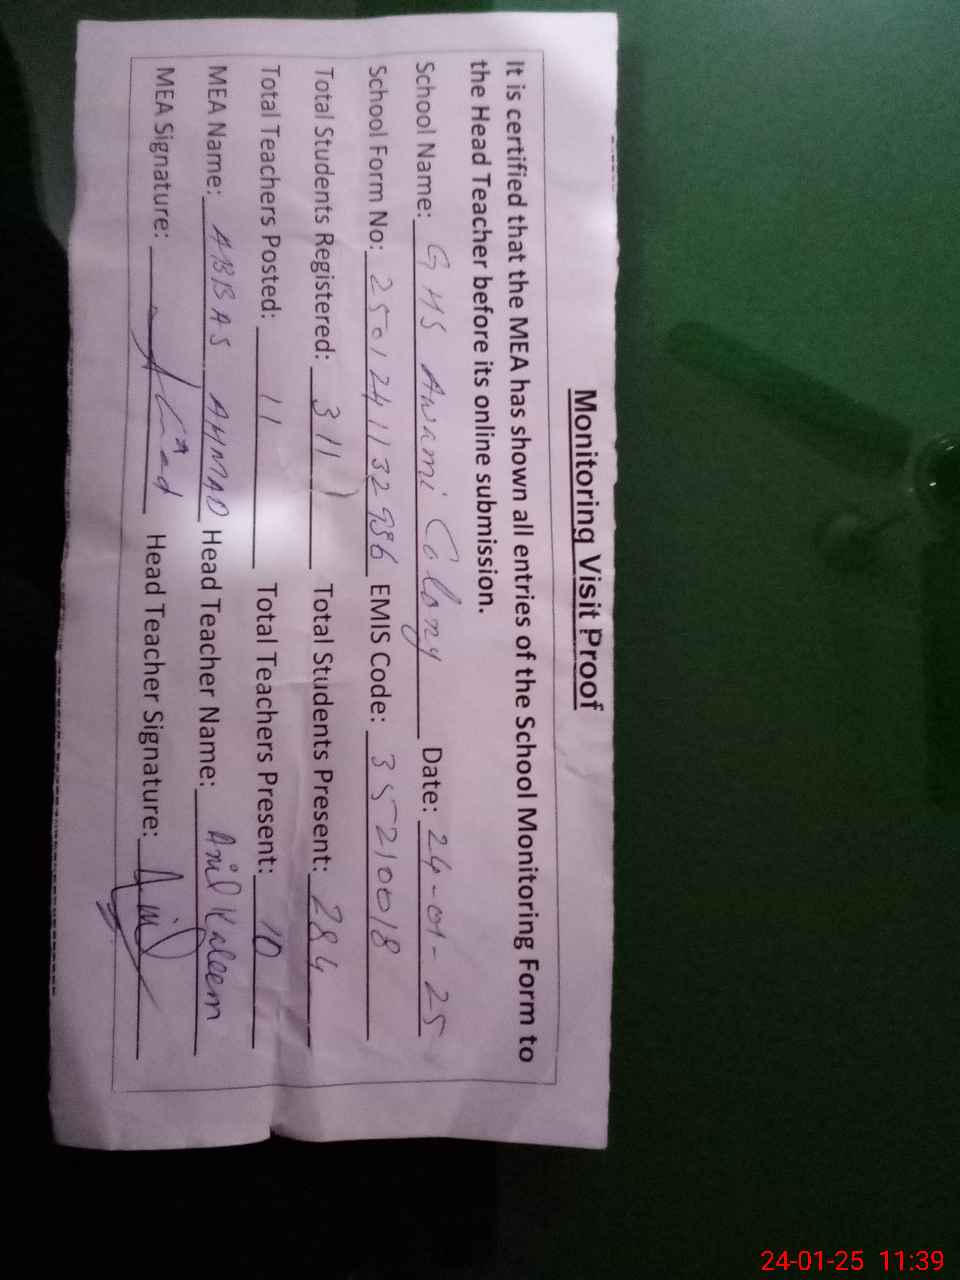 Monitoring Visit Proof
It is certified that the MEA has shown all entries of the School Monitoring Form to
the Head Teacher before its online submission.
School Name: GHS Awami Colony Date: 24-01-25
School Form No: 2501241132986 EMIS Code: 35210018
Total Students Registered: 311 Total Students Present: 284
Total Teachers Posted: 11 Total Teachers Present: 10
MEA Name: ABBAS AHMAD Head Teacher Name: Anil Kaleem
MEA Signature: Head Teacher Signature: Anil
24-01-25 11:39